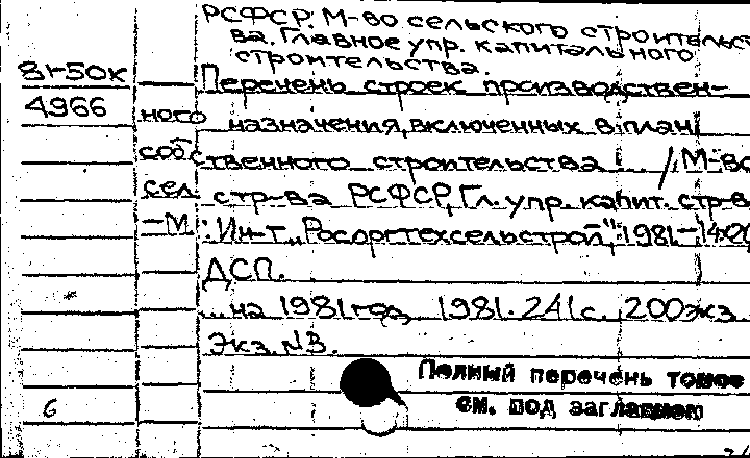 РСФСР. М-во сельского строительст-
ва. Главное упр. капитального
строительства.
81-50к Перечень строек производствен-
4966 ного назначения, включенных в план
собственного строительства ... / М-во
сел. стр-ва РСФСР, Гл. упр. капит. стр-в
-М.: Ин-т „Росоргтехсельстрой", 1981-
ДСП.
...на 1981 год, 1981. 241 с. 200 экз.
Экз. №
Полный перечень томов
6 см. под заглавием